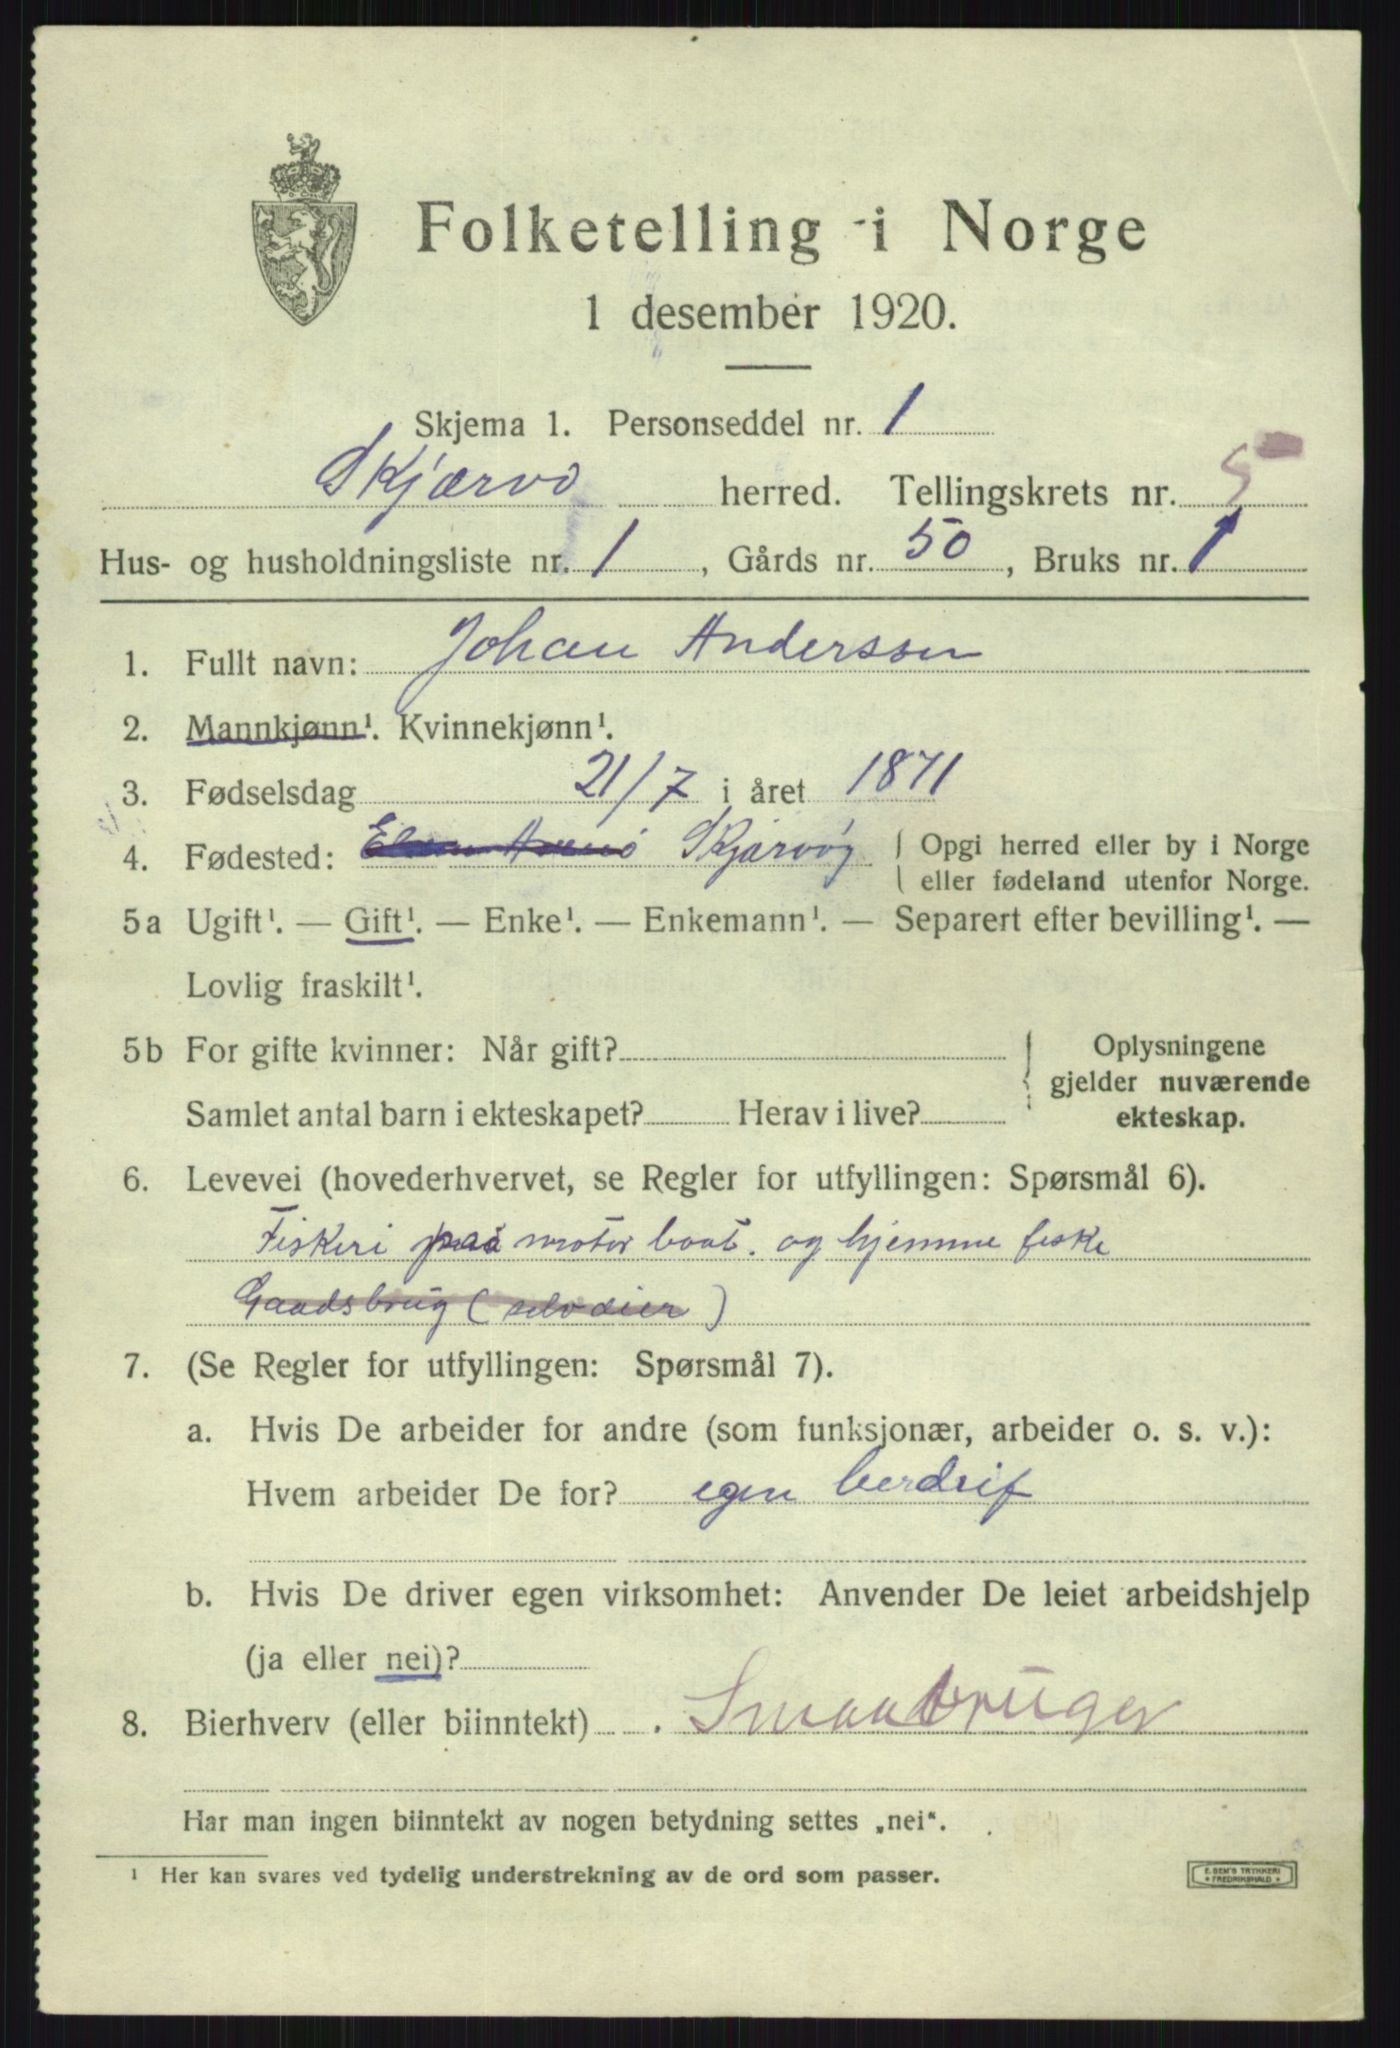 Folketelling i Norge
1 desember 1920.
Skjema 1. Personseddel nr. 1
Skjærvø herred. Tellingskrets nr. 5
Hus- og husholdningsliste nr. 1, Gårds nr. 50, Bruks nr. 1
1. Fullt navn: Johan Anderssen
2. Mannkjønn¹. Kvinnekjønn¹.
3. Fødselsdag 21/7 i året 1871
4. Fødested: Skjærvøy { Opgi herred eller by i Norge
eller fødeland utenfor Norge.
5a Ugift¹. — Gift¹. — Enke¹. — Enkemann¹. — Separert efter bevilling¹. —
Lovlig fraskilt¹.
5b For gifte kvinner: Når gift? { Oplysningene
gjelder nuværende
Samlet antal barn i ekteskapet? Herav i live? ekteskap.
6. Levevei (hovederhvervet, se Regler for utfyllingen: Spørsmål 6).
Fiskeri paa motor baat. og hjemme feske
Gaadsbrug (selveier)
7. (Se Regler for utfyllingen: Spørsmål 7).
a. Hvis De arbeider for andre (som funksjonær, arbeider o. s. v.):
Hvem arbeider De for? egen berdrif
b. Hvis De driver egen virksomhet: Anvender De leiet arbeidshjelp
(ja eller nei)?
8. Bierhverv (eller biinntekt) Smaabruger
Har man ingen biinntekt av nogen betydning settes „nei“.
¹ Her kan svares ved tydelig understrekning av de ord som passer.
E. SEM'S TRYKKERI
* FREDRIKSHALD *